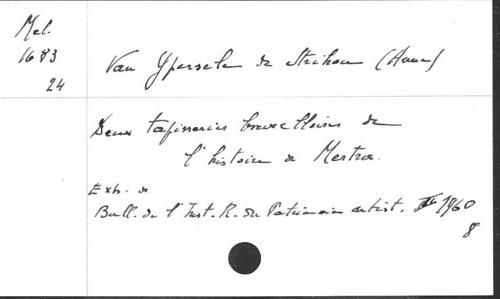 Mel.
1683
24
Van Ypersele de Strihou (Anne)
Deux tapisseries bruxelloises de
l'histoire de Mestra.
Extr. de
Bull. de l'Inst. R. du Patrimoine artist. 1960
8